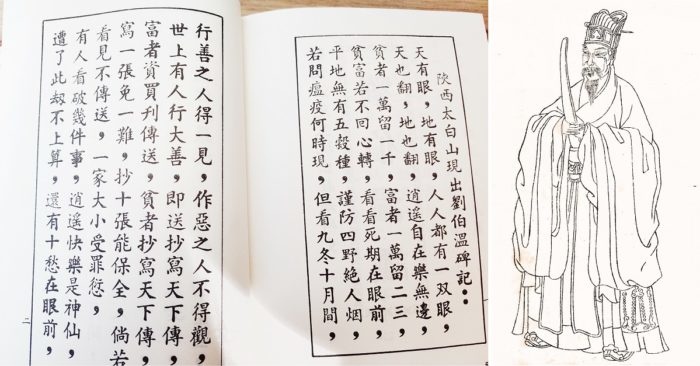 陝西太白山現出劉伯溫碑記：
天有眼，地有眼，人人都有一双眼，
天也翻，地也翻，逍遙自在樂無邊，
貧者一萬留一千，富者一萬留二三，
貧富若不回心轉，看看死期在眼前，
平地無有五穀種，謹防四野絕人烟，
若問瘟疫何時現，但看九冬十月間，
行善之人得一見，作惡之人不得觀，
世上有人行大善，即送抄寫天下傳，
富者資買刊傳送，貧者抄寫天下傳，
寫一張免一難，抄十張能保全，倘若
看見不傳送，一家大小受罪愆，
有人看破幾件事，逍遙快樂是神仙，
遭了此劫不上算，還有十愁在眼前，
二